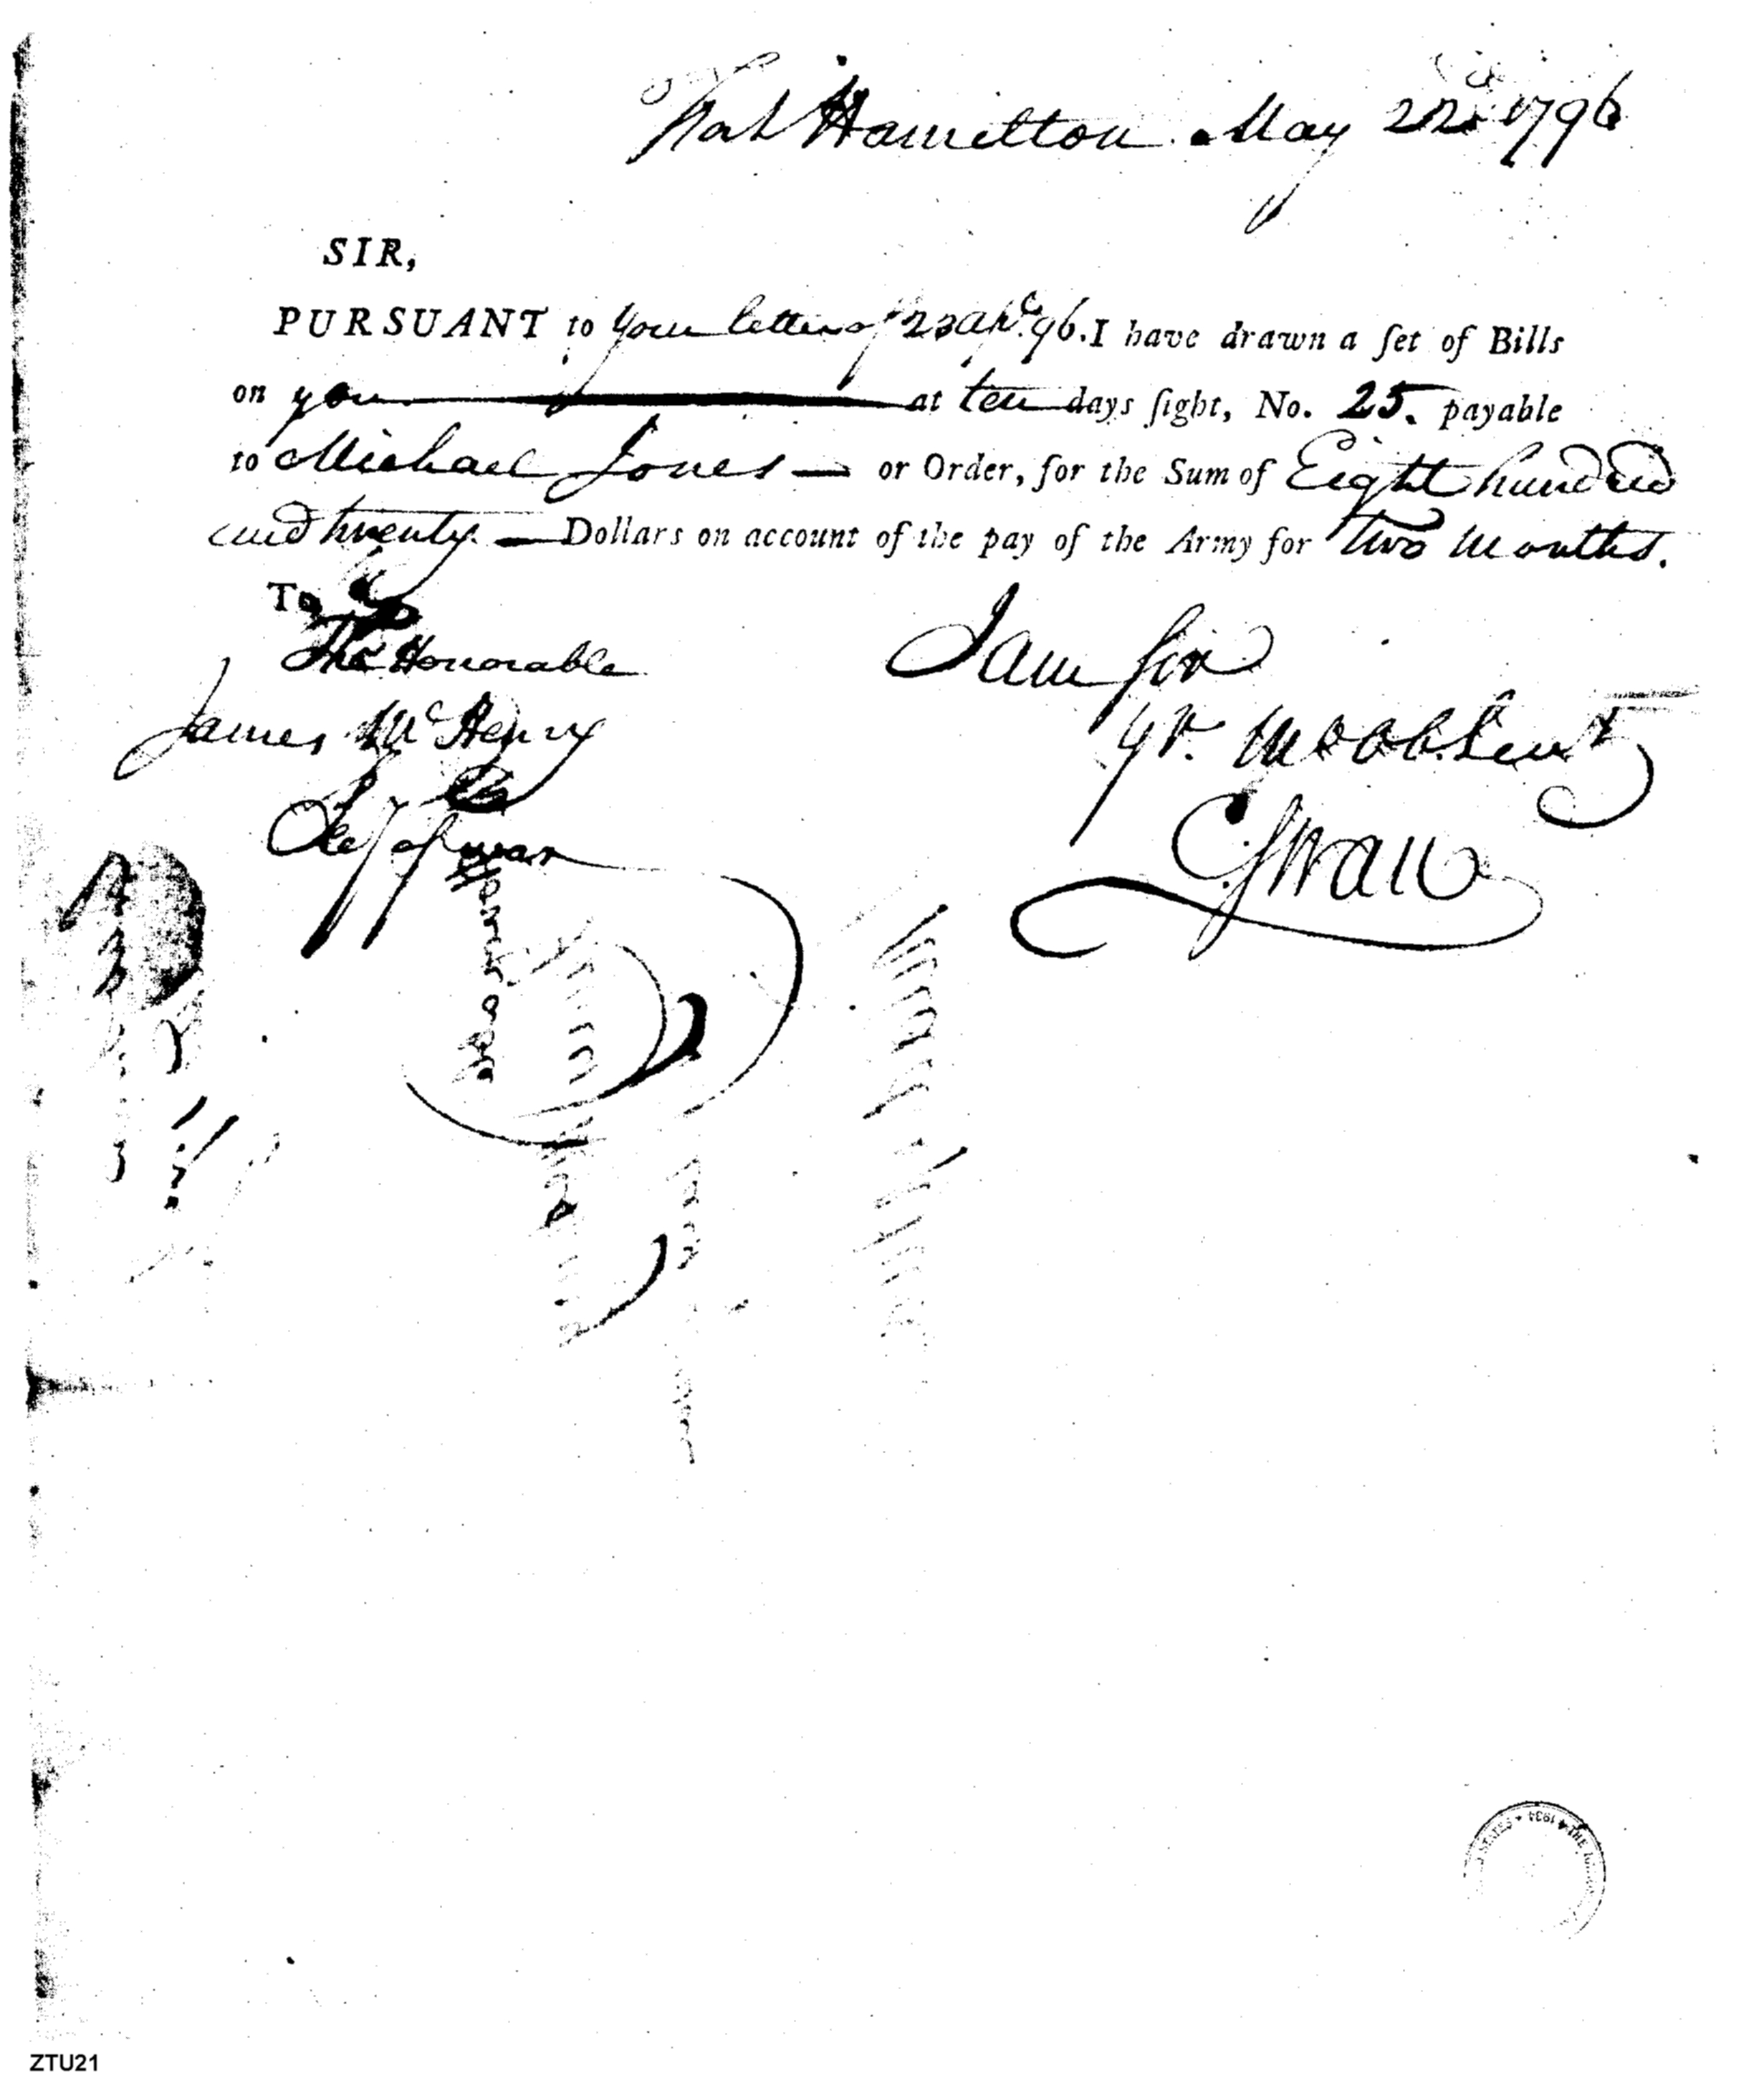 Fort Hamilton May 22d 1796
SIR,
PURSUANT to your letter of 23 Apl. 96. I have drawn a ſet of Bills
on you at ten days ſight, No. 25. payable
to Michael Jones — or Order, for the Sum of Eight hundred
and twenty — Dollars on account of the pay of the Army for two months.
To
The Honorable
James McHenry
Secy of war
I am sir
yr. mo obt. Servt
C Swan
1934
ZTU21